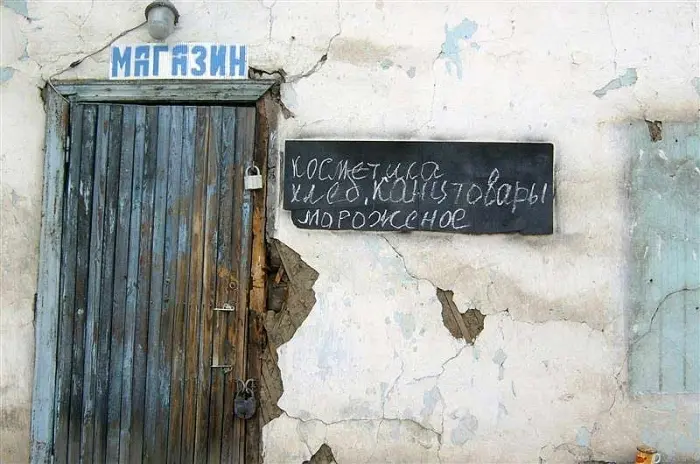 МАГАЗИН
косметика
хлеб, канцтовары
мороженое